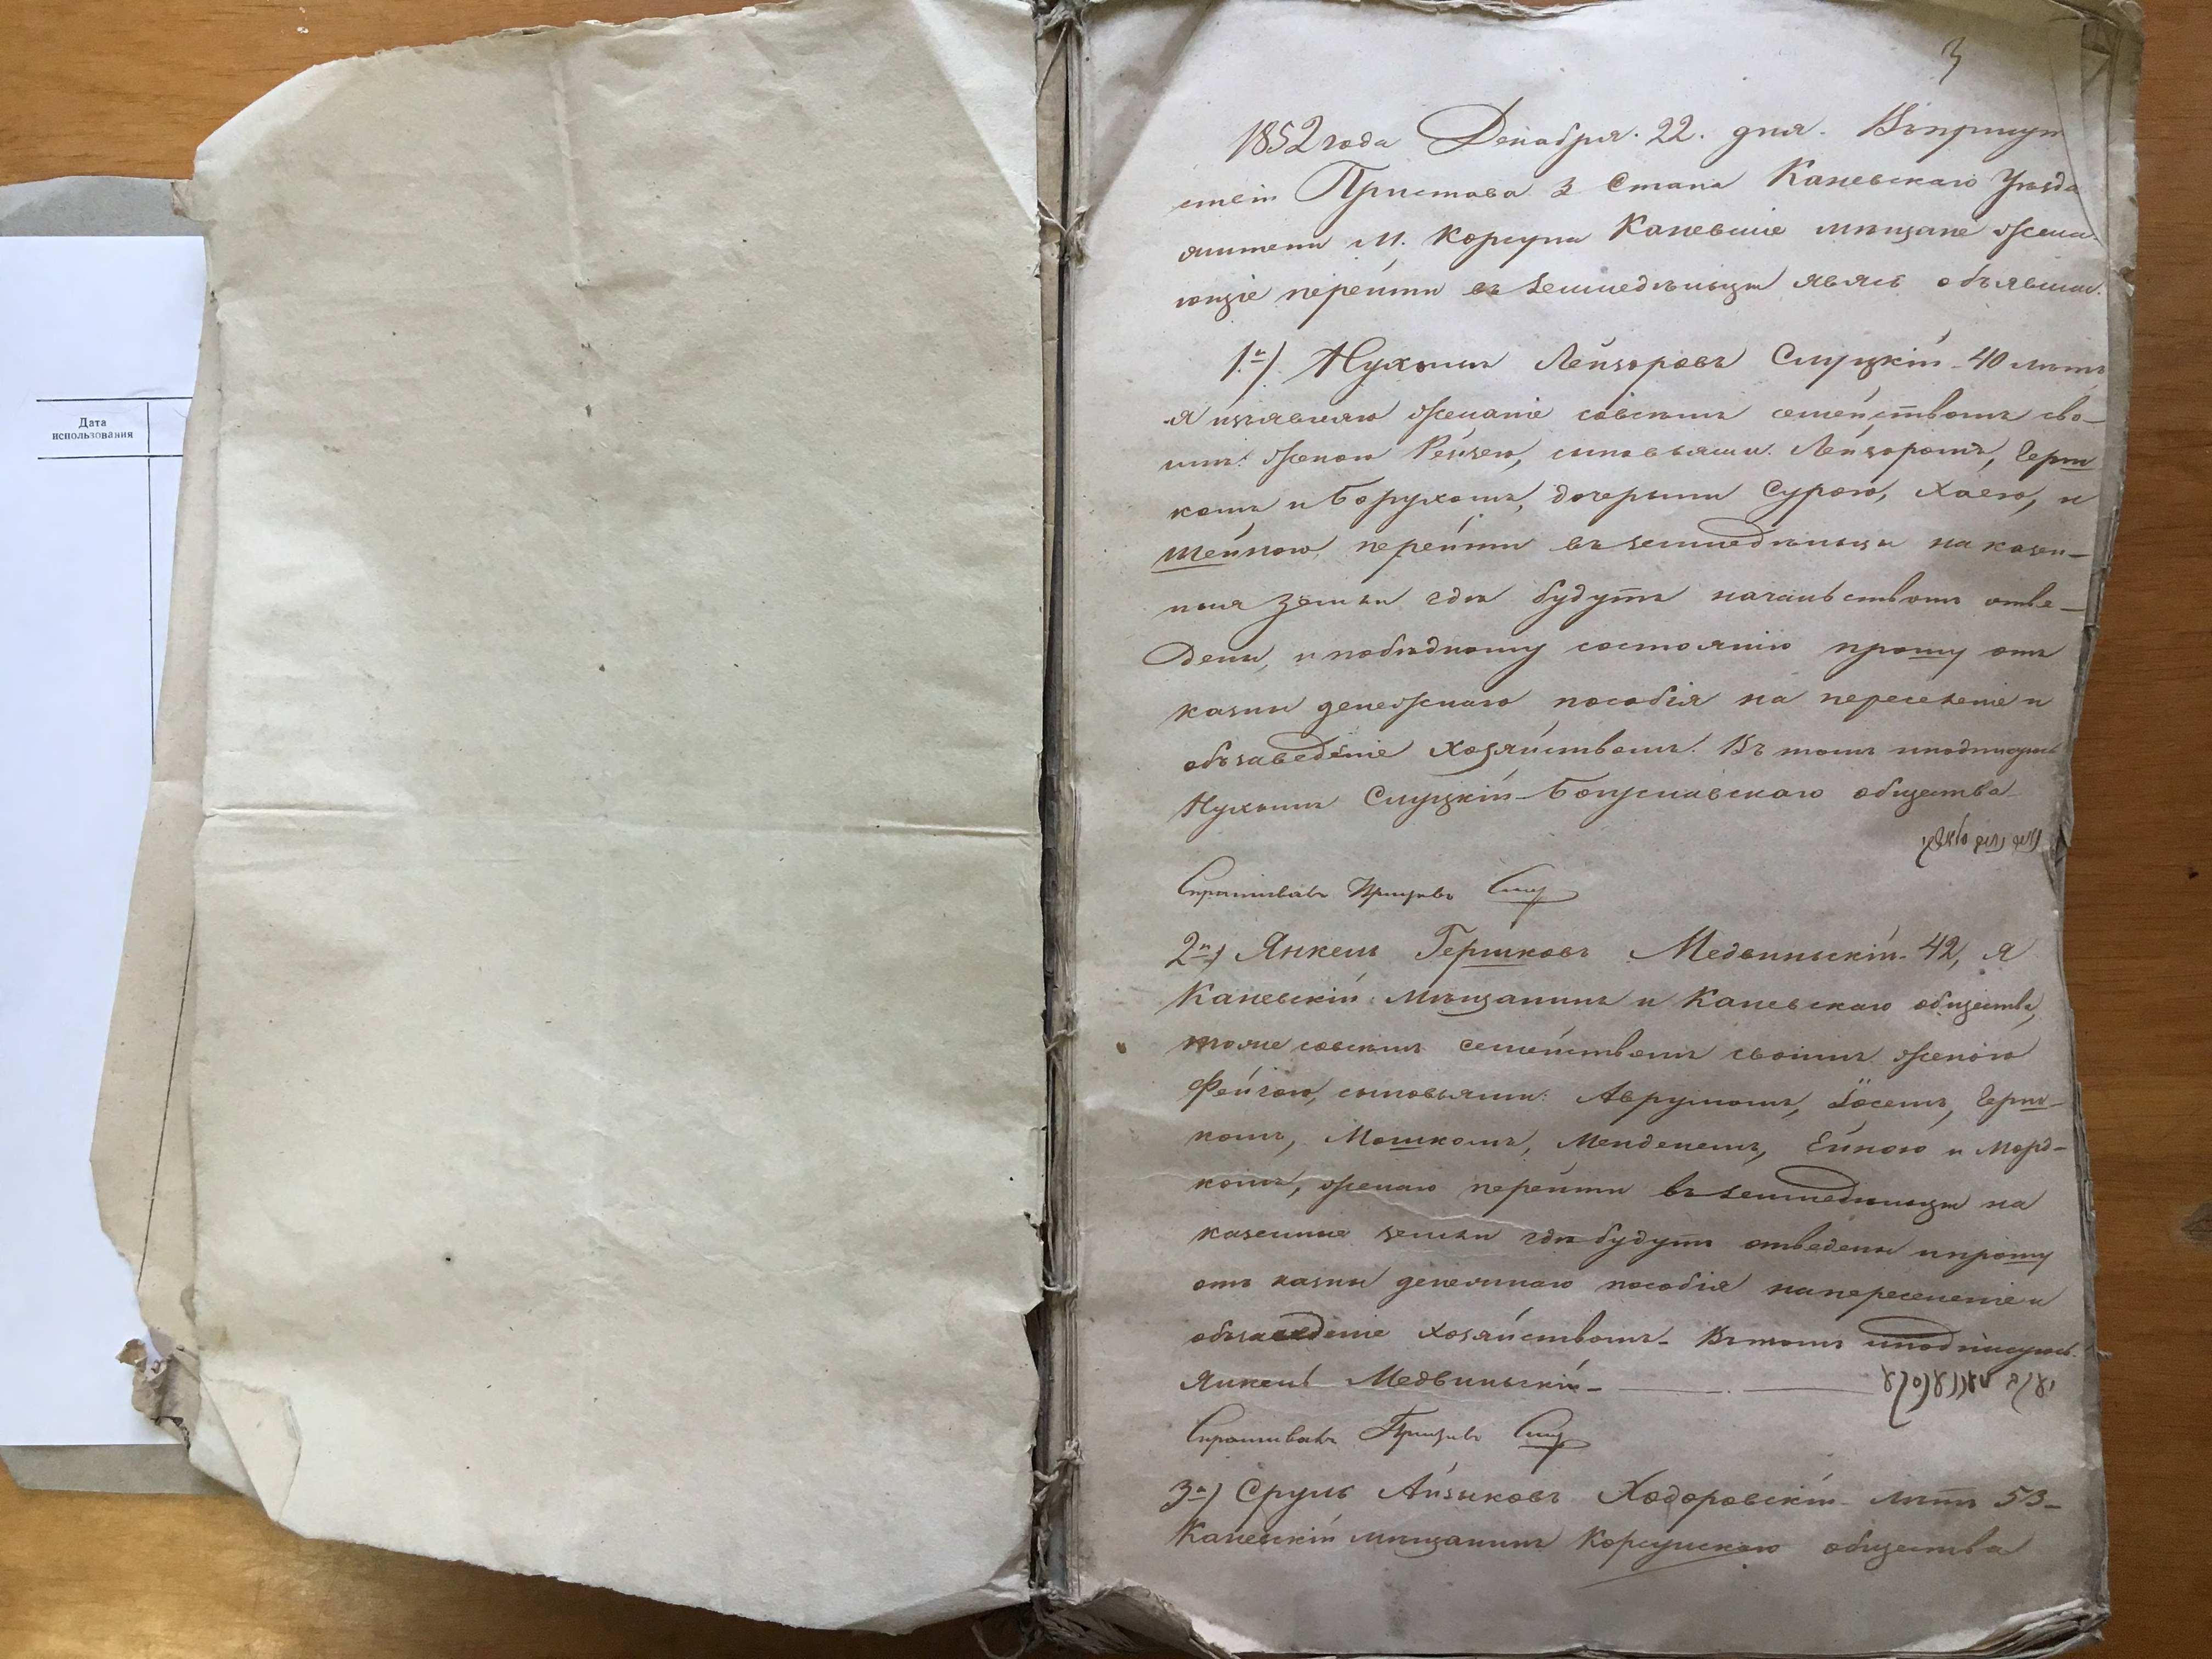 Дата
использования
3
1852 года Декабря 22. дня. Въ присут
ствіи Пристава 3 Стана Каневскаго Уѣзда
жители М. Корсуна Каневскіе мѣщане жела-
ющіе перейти въ земледѣльцы явясь объявили.
1й) Нухимъ Лейзоровъ Слуцкій 40 лѣтъ
я изъявляю желаніе совсѣмъ семействомъ сво-
имъ: женою Рейзею, сыновьями: Лейзоромъ, Герш
комъ и Борухомъ, дочерьми Сурою, Хаею, и
Шейною, перейти въ земледѣльцы на казен-
ныя земли гдѣ будутъ начальствомъ отве-
дены, и по бѣдному состоянію прошу отъ
казны денежнаго пособія на переселеніе и
обзаведеніе хозяйствомъ. Въ томъ и подписуюсь
Нухимъ Слуцкій Богуславскаго общества
Спрашивалъ Приставъ
2й) Янкель Гершковъ Медвинскій 42, я
Каневскій Мѣщанинъ и Каневскаго общества,
тоже совсѣмъ семействомъ своимъ женою
Фейгою, сыновьями: Аврумомъ, Іосемъ, Герш-
комъ, Мошкомъ, Менделемъ, Ейною иМорд-
комъ, желаю перейти въ земледѣльцы на
казенные земли гдѣ будутъ отведены и прошу
отъ казны денежнаго пособія на переселеніе и
обзаведеніе хозяйствомъ. Въ томъ и подписуюсь.
Янкель Медвинскій
Спрашивалъ Приставъ
3й) Сруль Айзиковъ Ходоровскій лѣтъ 53
Каневскій мѣщанинъ Корсунскаго общества